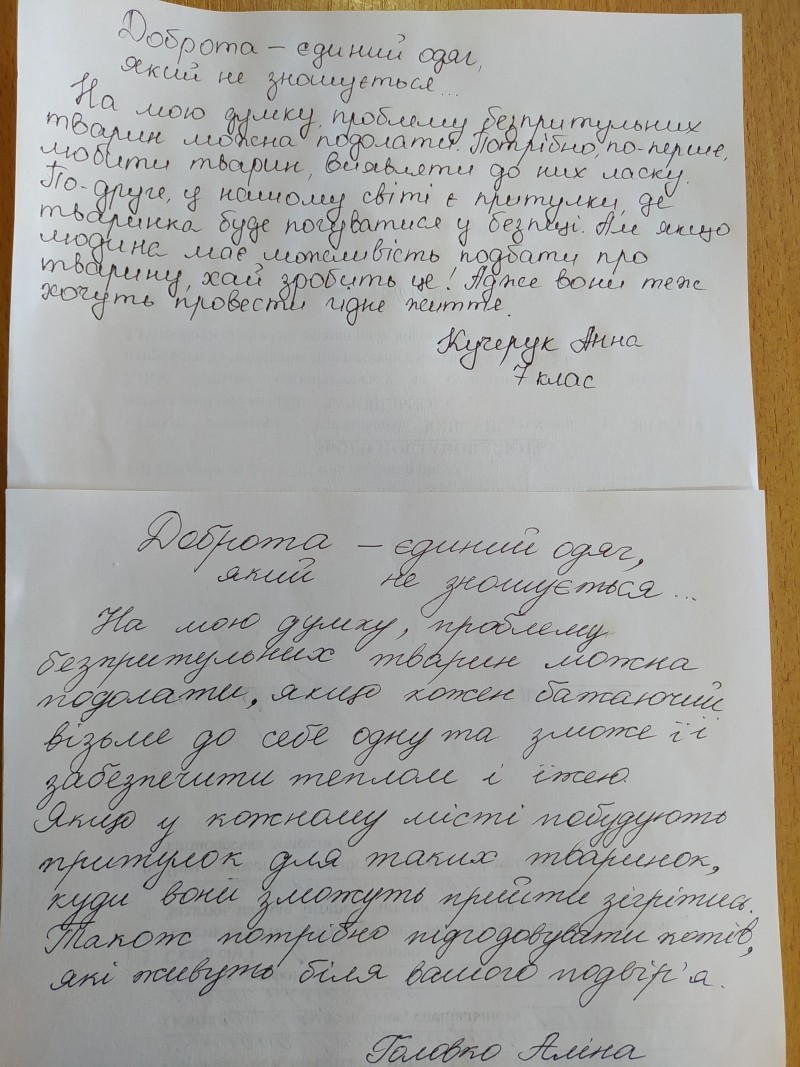 Доброта – єдиний одяг,
який не зношується...
На мою думку, проблему безпритульних
тварин можна подолати. Потрібно, по-перше,
любити тварин, виявляти до них ласку.
По-друге, у нашому світі є притулки, де
тваринка буде почуватися у безпеці. Але якщо
людина має можливість подбати про
тварину, хай зробить це! Адже вони теж
хочуть провести гідне життя.
Кучерук Анна
7 клас
Доброта – єдиний одяг,
який не зношується...
На мою думку, проблему
безпритульних тварин можна
подолати, якщо кожен бажаючий
візьме до себе одну та зможе її
забезпечити теплом і їжею.
Якщо у кожному місті побудують
притулок для таких тваринок,
куди вони зможуть прийти зігрітись.
Також потрібно підгодовувати котів,
які живуть біля вашого подвір'я.
Головко Аліна